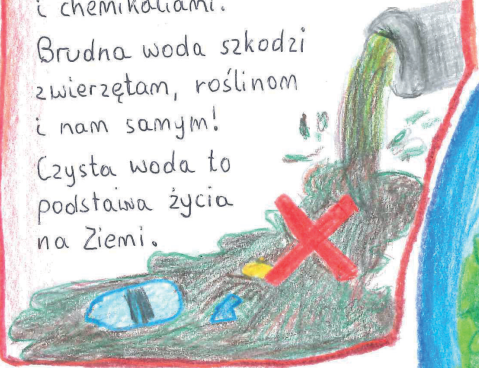 i chemikaliami.
Brudna woda szkodzi
zwierzętam, roślinom
i nam samym!
Czysta woda to
podstawa życia
na Ziemi.